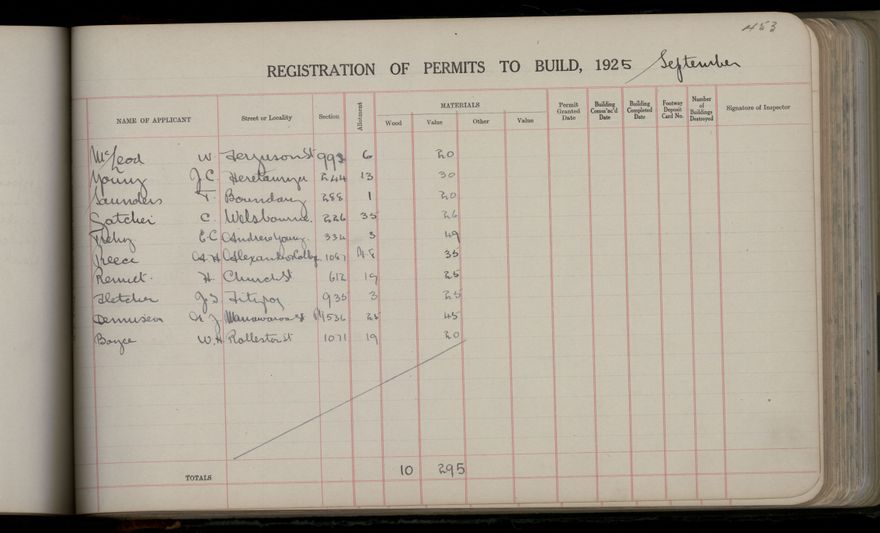 453
REGISTRATION OF PERMITS TO BUILD, 1925 September
NAME OF APPLICANT Street or Locality Section Allotment MATERIALS Wood Value Other Value Permit Granted Date Building Comm'nc'd Date Building Completed Date Footway Deposit Card No. Number of Buildings Destroyed Signature of Inspector
McLeod W. Ferguson St 993 6 20
Young J.C. Heretaunga 244 13 30
Saunders T. Boundary 288 1 20
Gatcher C. Welsbourne 226 35 26
E.C. Andrew Young 334 3 49
Reece A.H. 1087 35
H. Church St 612 19 25
Fletcher J.S. Fitzroy 935 3 25
Manawaroa St 536 25 45
Boyce W.H. Rolleston St 1071 19 20
TOTALS 10 295